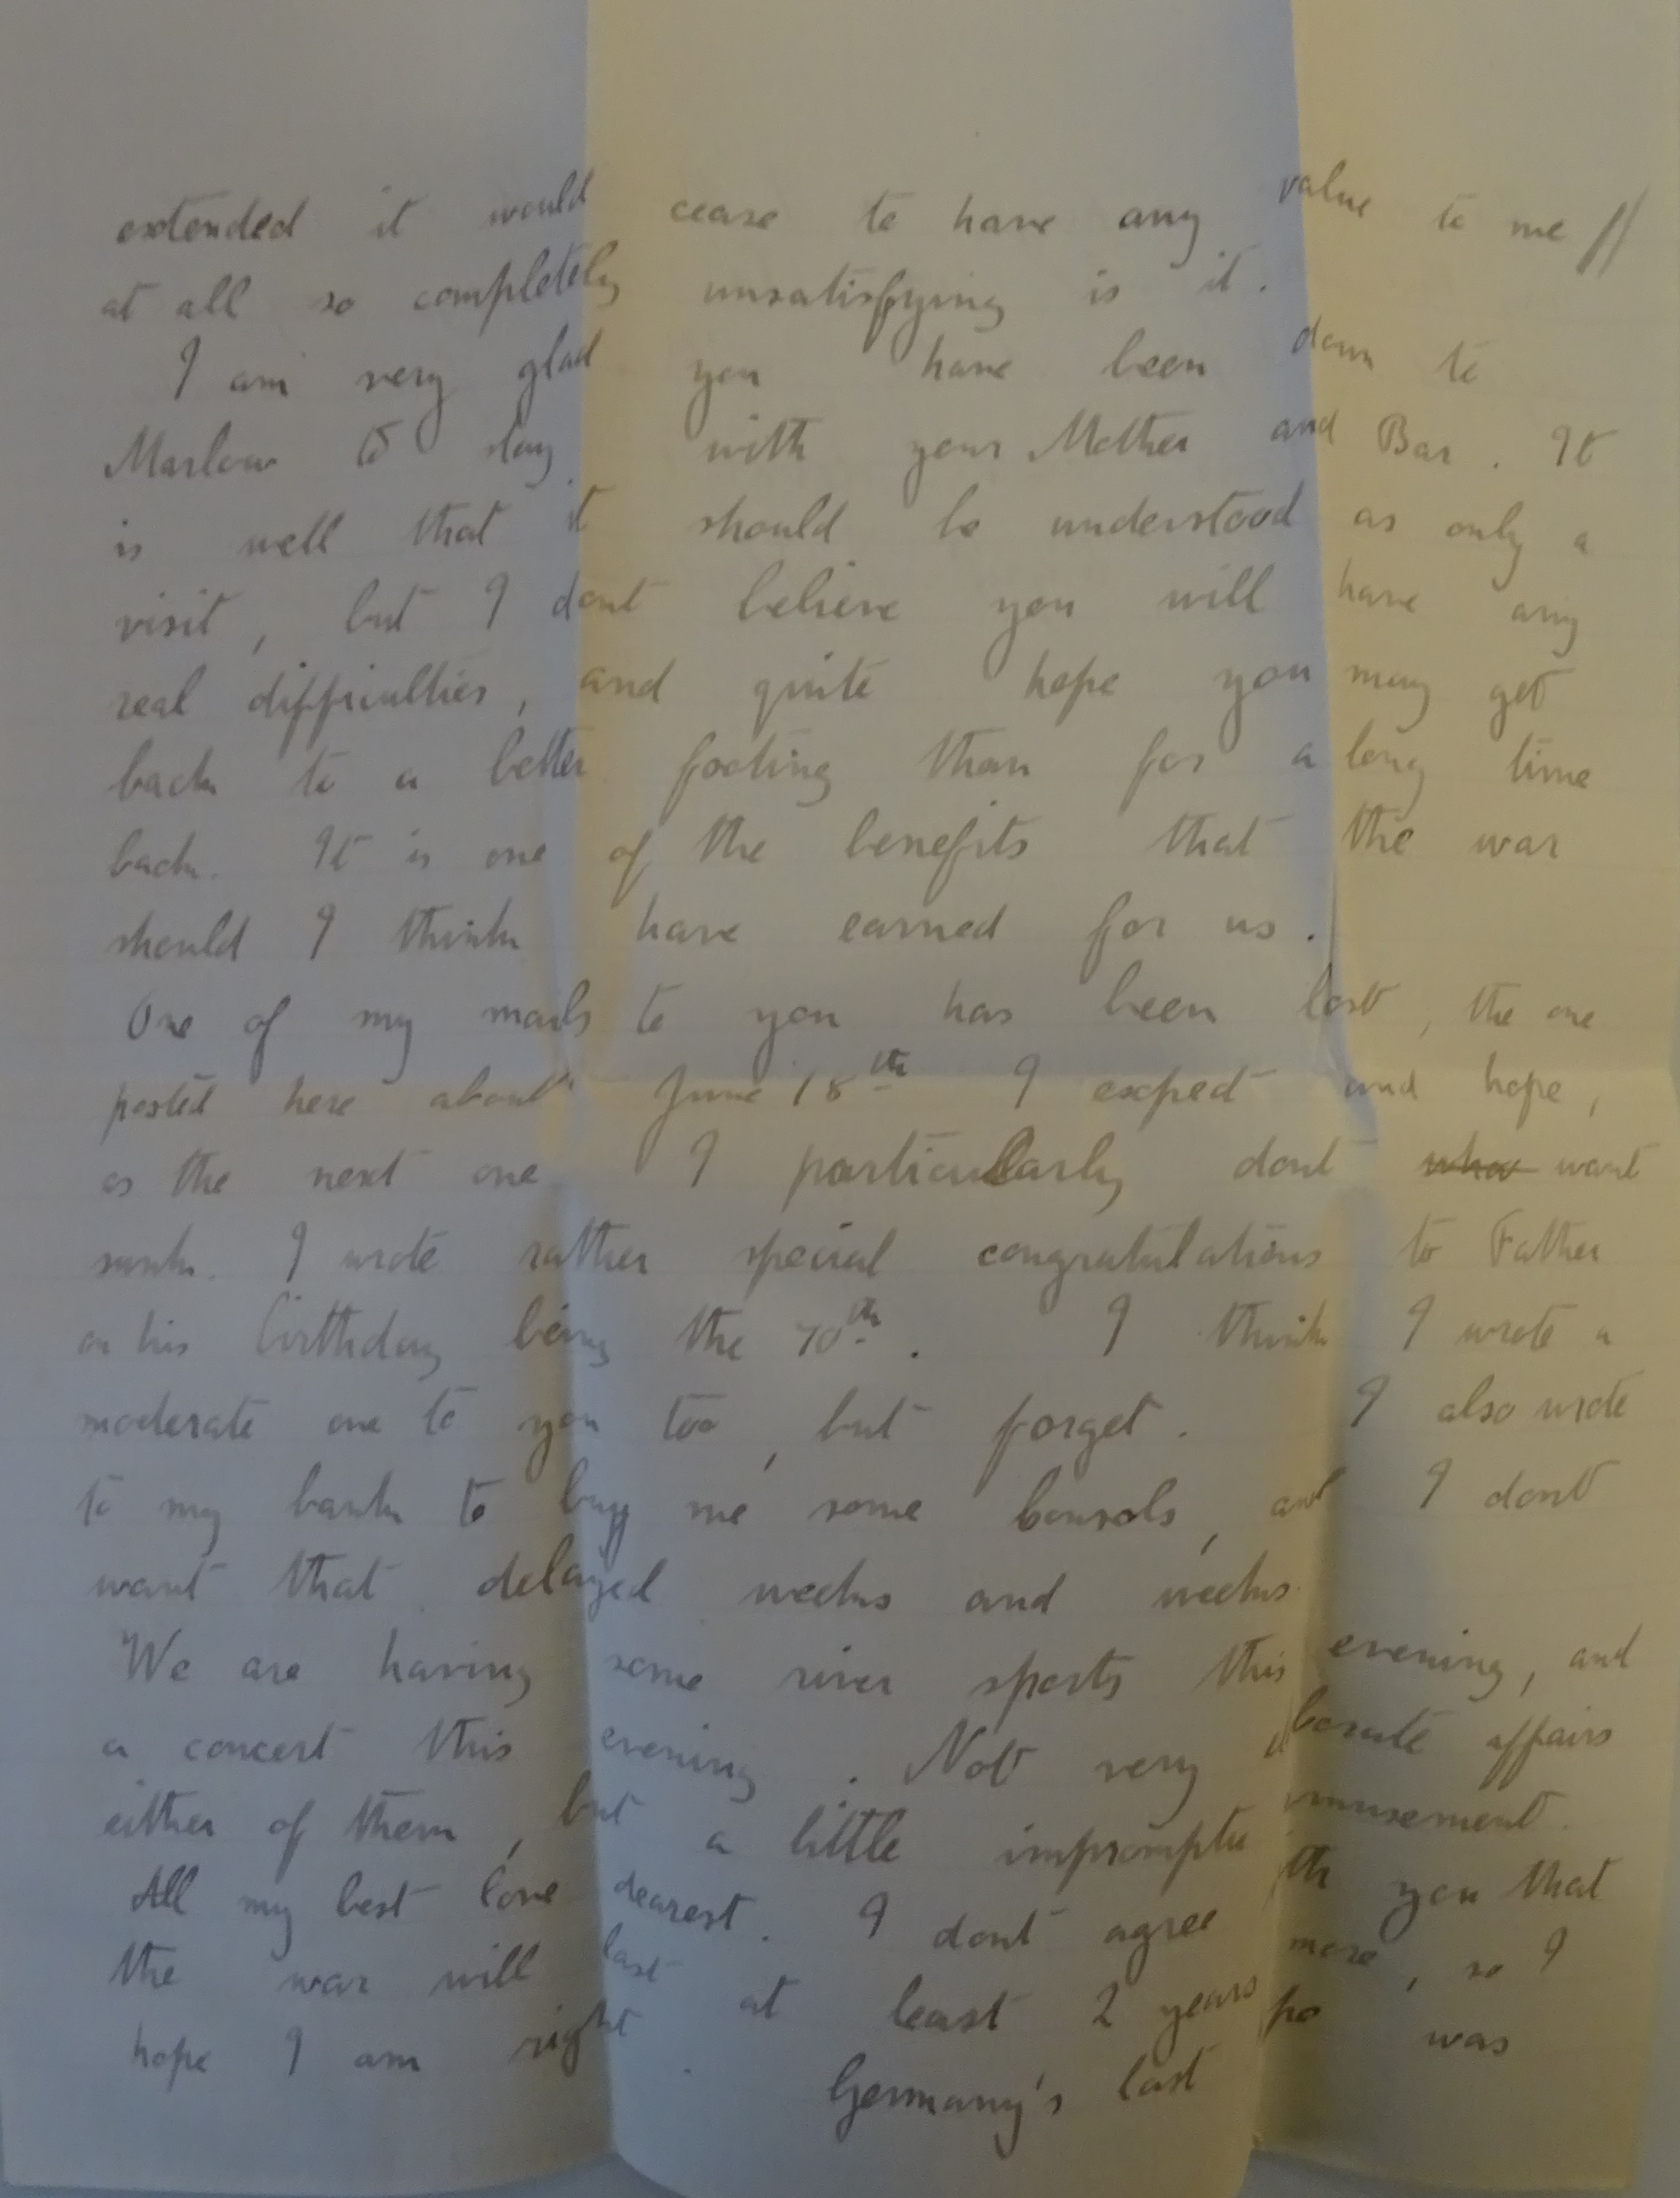 extended it would cease to have any value to me //
at all so completely unsatisfying is it.
I am very glad you have been down to
Marlow to stay with your Mother and Bar. It
is well that it should be understood as only a
visit, but I dont believe you will have any
real difficulties, and quite hope you may get
back to a better footing than for a long time
back. It is one of the benefits that the war
should I think have earned for us.
One of my mails to you has been lost, the one
posted here about June 18th I expect and hope,
as the next one I particularly dont want
sunk. I wrote rather special congratulations to Father
on his birthday being the 70th. I think I wrote a
moderate one to you too, but forget. I also wrote
to my bank to buy me some consols, and I dont
want that delayed weeks and weeks.
We are having some river sports this evening, and
a concert this evening. Not very elborate affairs
either of them, but a little impromptu amusement.
All my best love dearest. I dont agree with you that
the war will last at least 2 years more, so I
hope I am right. Germany's last was